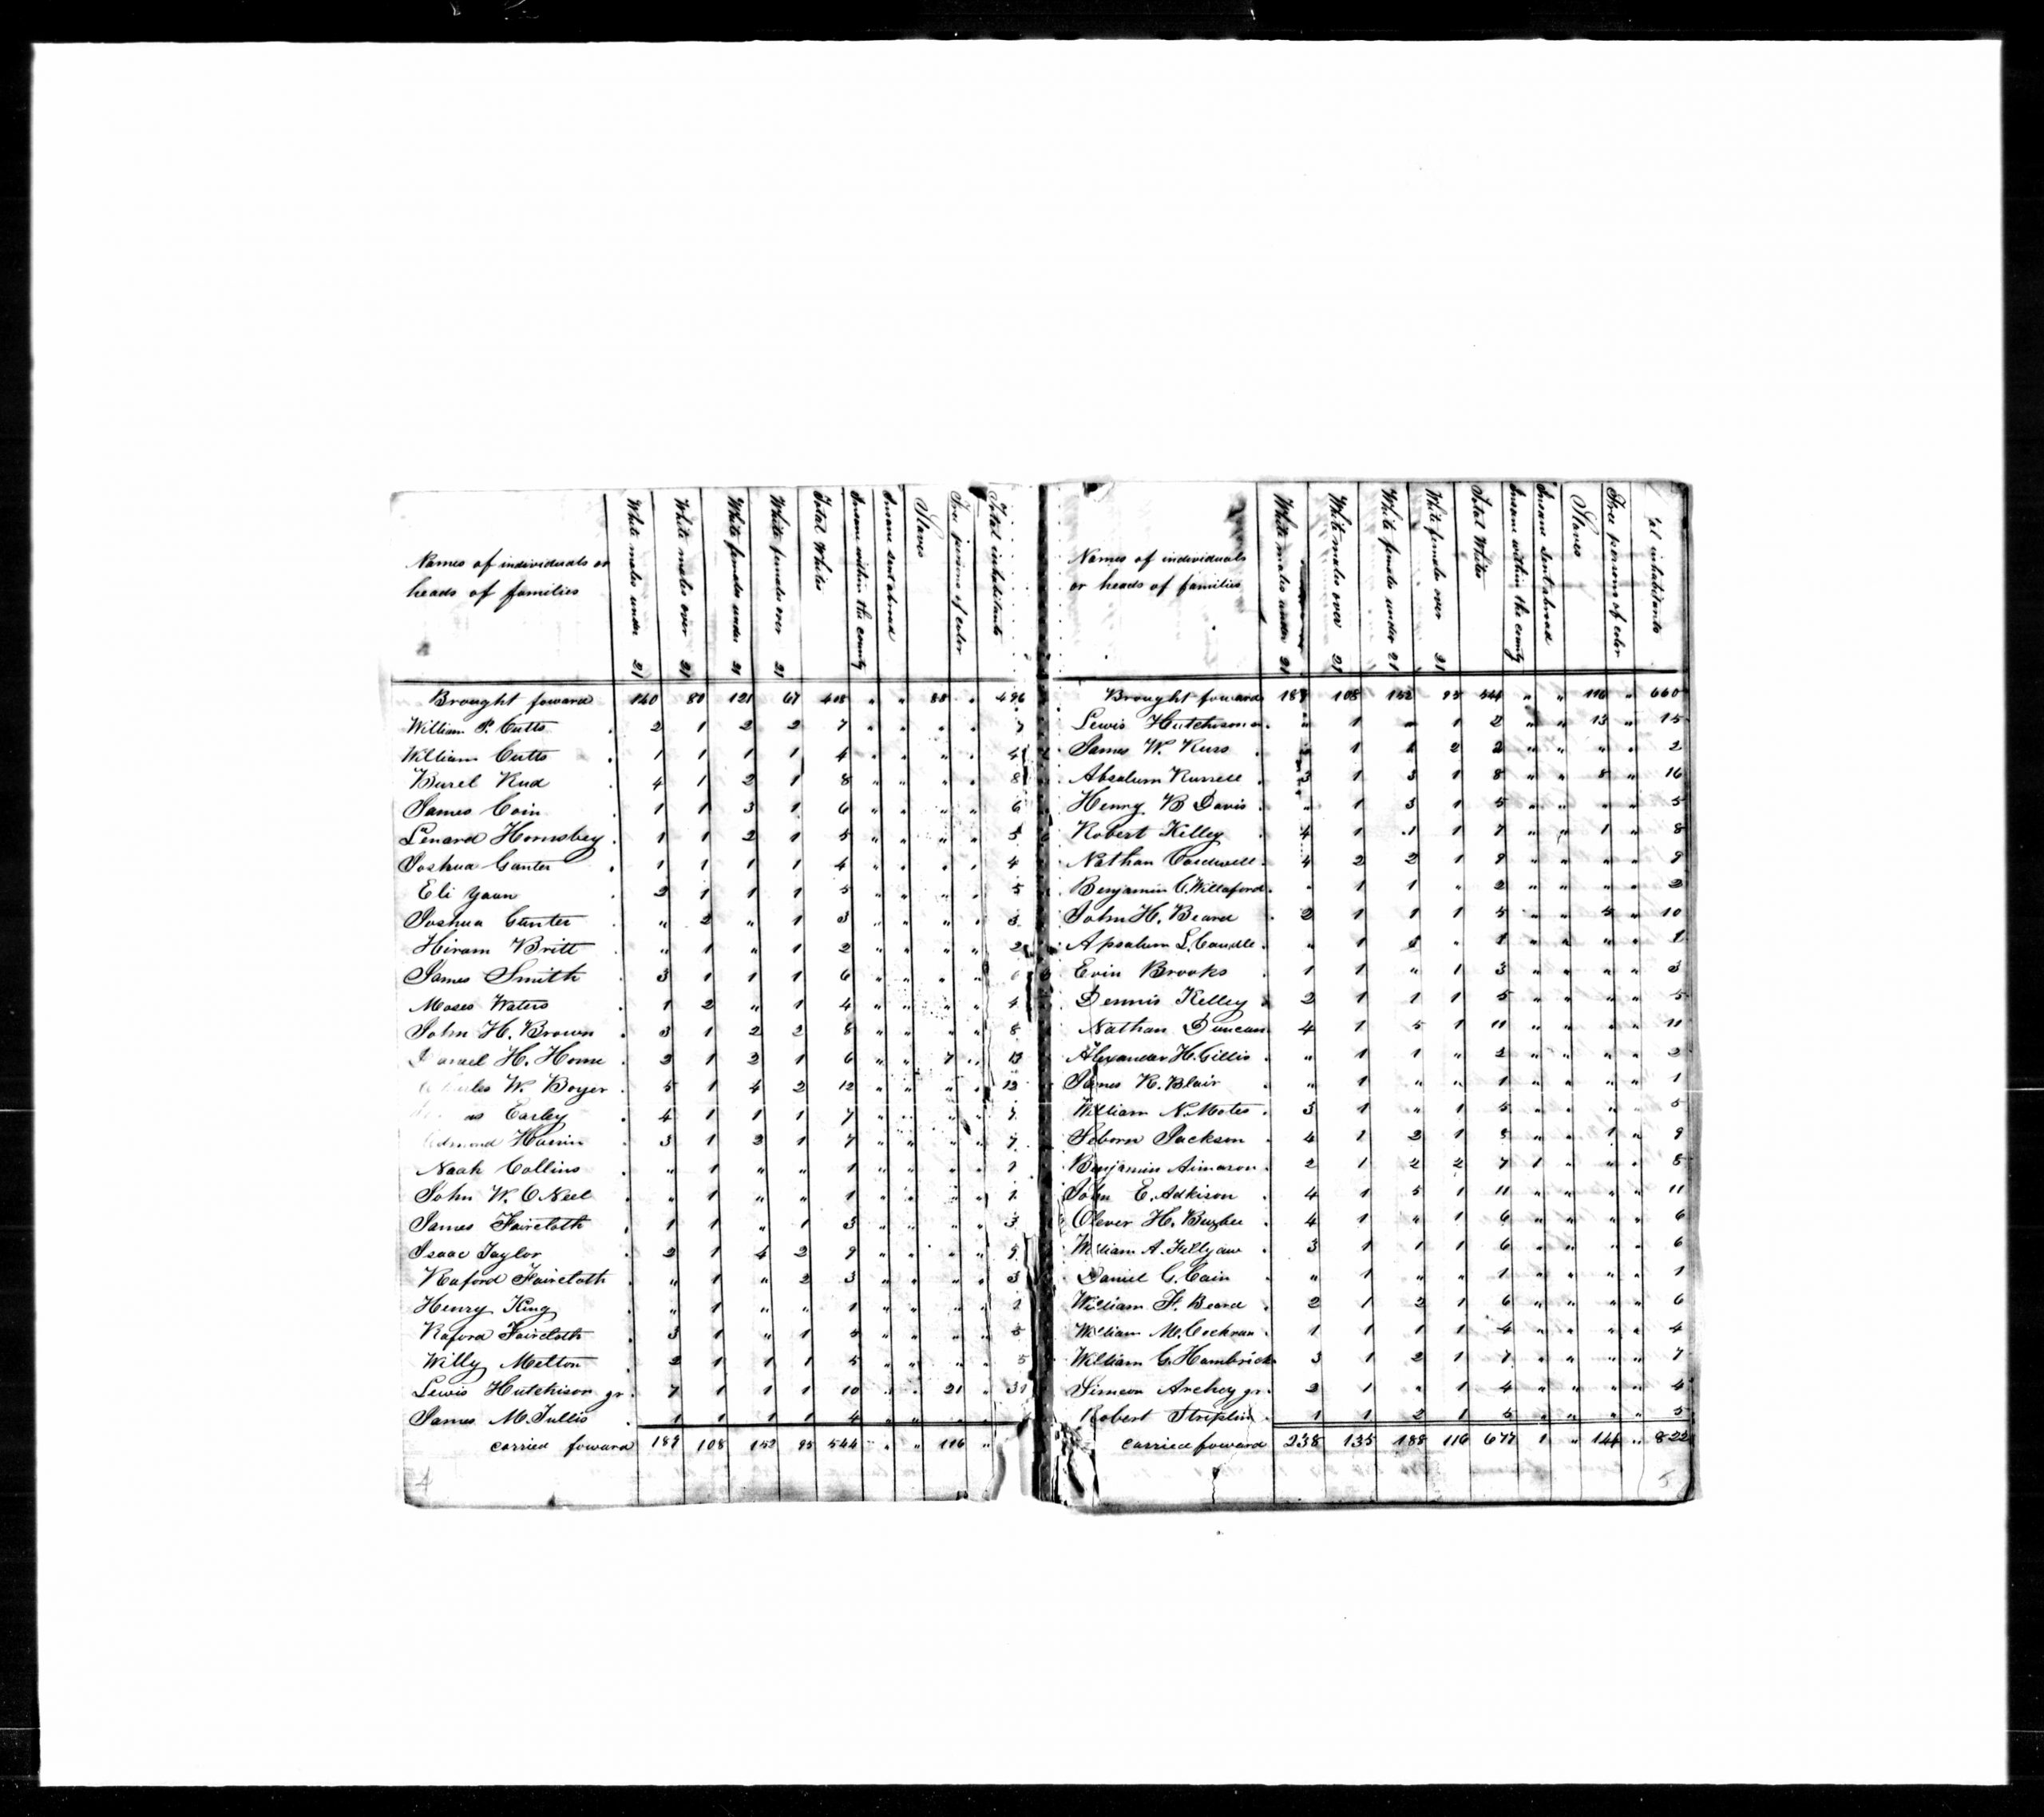 Names of individuals or
heads of families
White males under 21
White males over 21
White females under 21
White females over 21
Total Whites
Insane within the county
Insane sent abroad
Slaves
Free persons of color
Total inhabitants
Brought foward 140 80 121 67 408 " " 88 . 496
William P. Cutts . 2 1 2 2 7 " . . . 7
William Cutts . 1 1 1 1 4 " . " . 4
Burel Rud . 4 1 2 1 8 " " " . 8
James Coin . 1 1 3 1 6 " " " " 6
Lenard Hornsbey . 1 1 2 1 5 " " " " 5
Joshua Ganter . 1 1 1 1 4 " . . . 4
Eli Yaun . 2 1 1 1 5 " " " . 5
Joshua Gunter . " 2 " 1 3 " " " . 3
Hiram Britt . " 1 " 1 2 " " " " 2
James Smith . 3 1 1 1 6 " " " " 6
Moses Waters . 1 2 " 1 4 " " " " 4
John H. Brown . 3 1 2 2 8 " " " " 8
H. Horne . 2 1 2 1 6 " " 7 " 13
W. Boyer . 5 1 4 2 12 " " " . 12
Earley . 4 1 1 1 7 " " " " 7
Harrin . 3 1 2 1 7 " " " " 7
Noah Collins . " 1 " " 1 " " " . 1
John W. ONeel . " 1 " " 1 " " " " 1
James Faircloth . 1 1 " 1 3 " " " " 3
Isaac Taylor . 2 1 4 2 9 " " " " 9
Raford Faircloth . " 1 " 2 3 " " " . 3
Henry King . " 1 " " 1 " " " . 1
Raford Faircloth . 3 1 " 1 5 " " " " 5
Willy Melton . 2 1 1 1 5 " " " . 5
Lewis Hutchison gr. 7 1 1 1 10 " . 21 " 31
James M. Tullis . 1 1 1 1 4 " " "
carried foward 189 108 152 95 544 " " 116 "
4
Names of individuals
or heads of families
White males under 21
White males over 21
White females under 21
White females over 21
Total Whites
Insane within the county
Insane sent abroad
Slaves
Free persons of color
inhabitants
Brought foward 189 108 152 95 544 " " 116 " 660
Lewis Hutchison . " 1 " 1 2 " " 13 " 15
James W. Russ . " 1 1 2 2 " " " . 2
Absalum Russell . 3 1 3 1 8 " " 8 " 16
Henry B Davis . " 1 3 1 5 " " " " 5
Robert Kelley . 4 1 1 1 7 " " 1 " 8
Nathan Cardwell . 4 2 2 1 9 " " " " 9
Benjamin C. Willaford . " 1 1 " 2 " " " " 2
John H. Beard . 2 1 1 1 5 " " 5 " 10
Apsalum L. Caudle . " 1 " " 1 " " " " 1
Evin Brooks . 1 1 " 1 3 " " " " 3
Dennis Kelley . 2 1 1 1 5 " " " " 5
Nathan Duncan 4 1 5 1 11 " " " " 11
Alexander H. Gillis . " 1 1 " 2 " " " " 2
James R. Blair . " 1 " " 1 " " " " 1
William N. Motes . 3 1 " 1 5 " " " " 5
Seborn Jackson . 4 1 2 1 8 " " 1 " 9
Benjamin Aimason . 2 1 2 2 7 1 " " . 8
John E. Adkison . 4 1 5 1 11 " " " " 11
Olever H. Buzbee . 4 1 " 1 6 " " " " 6
William A. Fillyaw . 3 1 1 1 6 " " " " 6
Daniel G. Cain . " 1 " " 1 " " " " 1
William F. Beard . 2 1 2 1 6 " " " " 6
William M. Cochran . 1 1 1 1 4 " " " " 4
William G. Hambrick 3 1 2 1 7 " " " " 7
Simeon Archey gr. 2 1 " 1 4 " " " " 4
Robert Striplin . 1 1 2 1 5 " " " " 5
carried foward 238 135 188 116 677 1 " 144 " 822
5